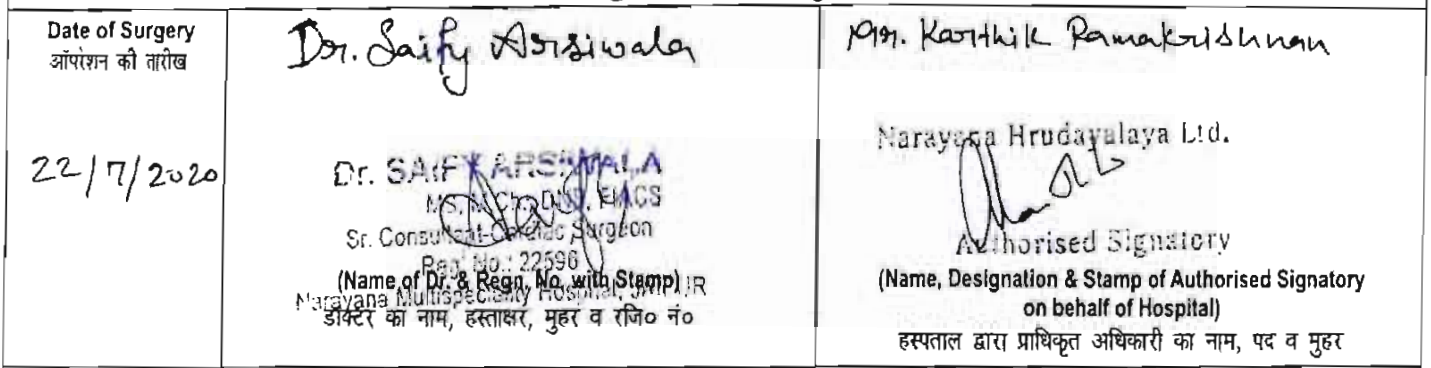 Date of Surgery
ऑपरेशन की तारीख
22/7/2020
Dr. Saify Arsiwala
Dr. SAIFY ARSIWALA
MS, MCh, DNB, FIACS
Sr. Consultant-Cardiac Surgeon
Reg. No.: 22596
(Name of Dr. & Regn. No. with Stamp)
Narayana Multispeciality Hospital, JAIPUR
डॉक्टर का नाम, हस्ताक्षर, मुहर व रजि० नं०
Mr. Karthik Ramakrishnan
Narayana Hrudayalaya Ltd.
Authorised Signatory
(Name, Designation & Stamp of Authorised Signatory
on behalf of Hospital)
हस्पताल द्वारा प्राधिकृत अधिकारी का नाम, पद व मुहर